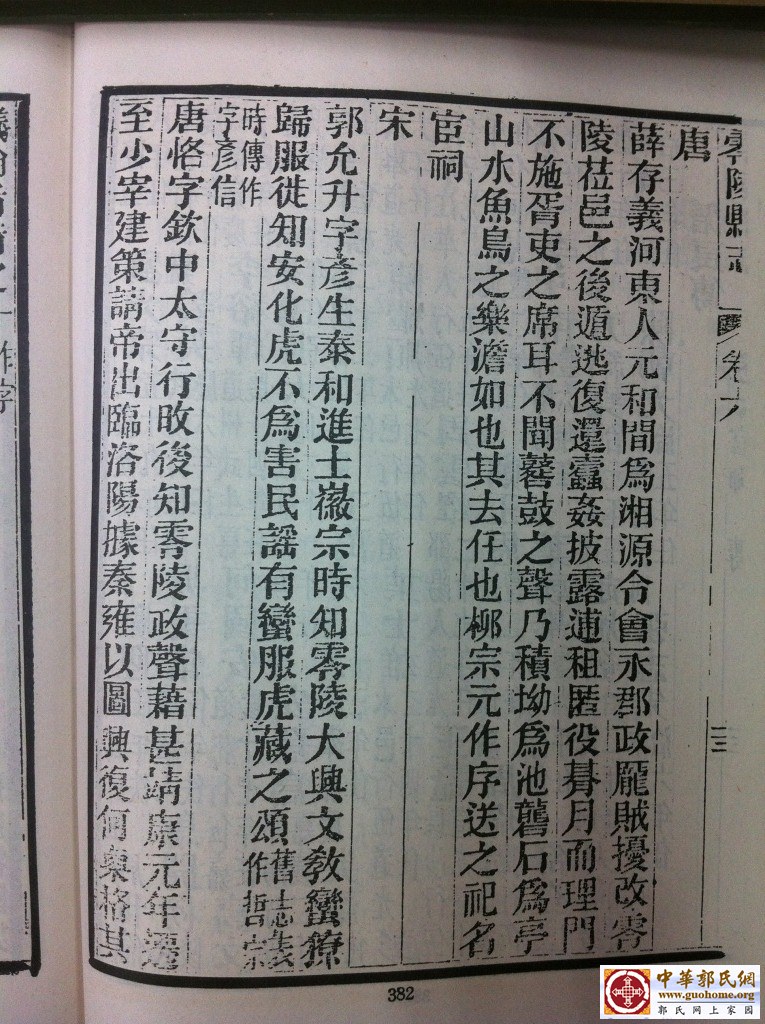 零陵縣志 卷六 三
唐
薛存義河東人元和間爲湘源令會永郡政龎賊擾改零
陵莅邑之後遁逃復還蠹姦披露逋租匿役朞月而理門
不施胥吏之席耳不聞鼛鼓之聲乃積坳爲池礱石爲亭
山水魚鳥之樂澹如也其去任也柳宗元作序送之祀名
宦祠
宋
郭允升字彥生泰和進士徽宗時知零陵大興文敎蠻獠
歸服徙知安化虎不爲害民謠有蠻服虎藏之頌舊志表
作哲宗
時傳作
字彥信
唐恪字欽中太守行敗後知零陵政聲藉甚靖康元年遷
至少宰建策請帝出臨洛陽據秦雍以圖興復何㮚格其
作字
382
中華郭氏網
www.guohome.org
郭氏网上家园